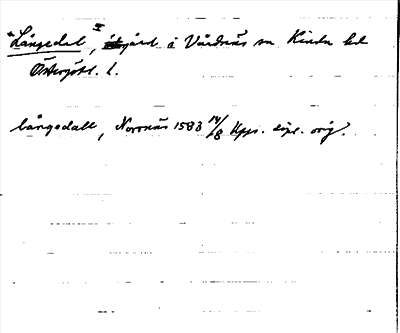 *Långedal, gård i Vårdnäs sn Kinda hd
Östergötl. l.
långedall, Norrnäs 1583 14/8 Upps. dipl. orig.